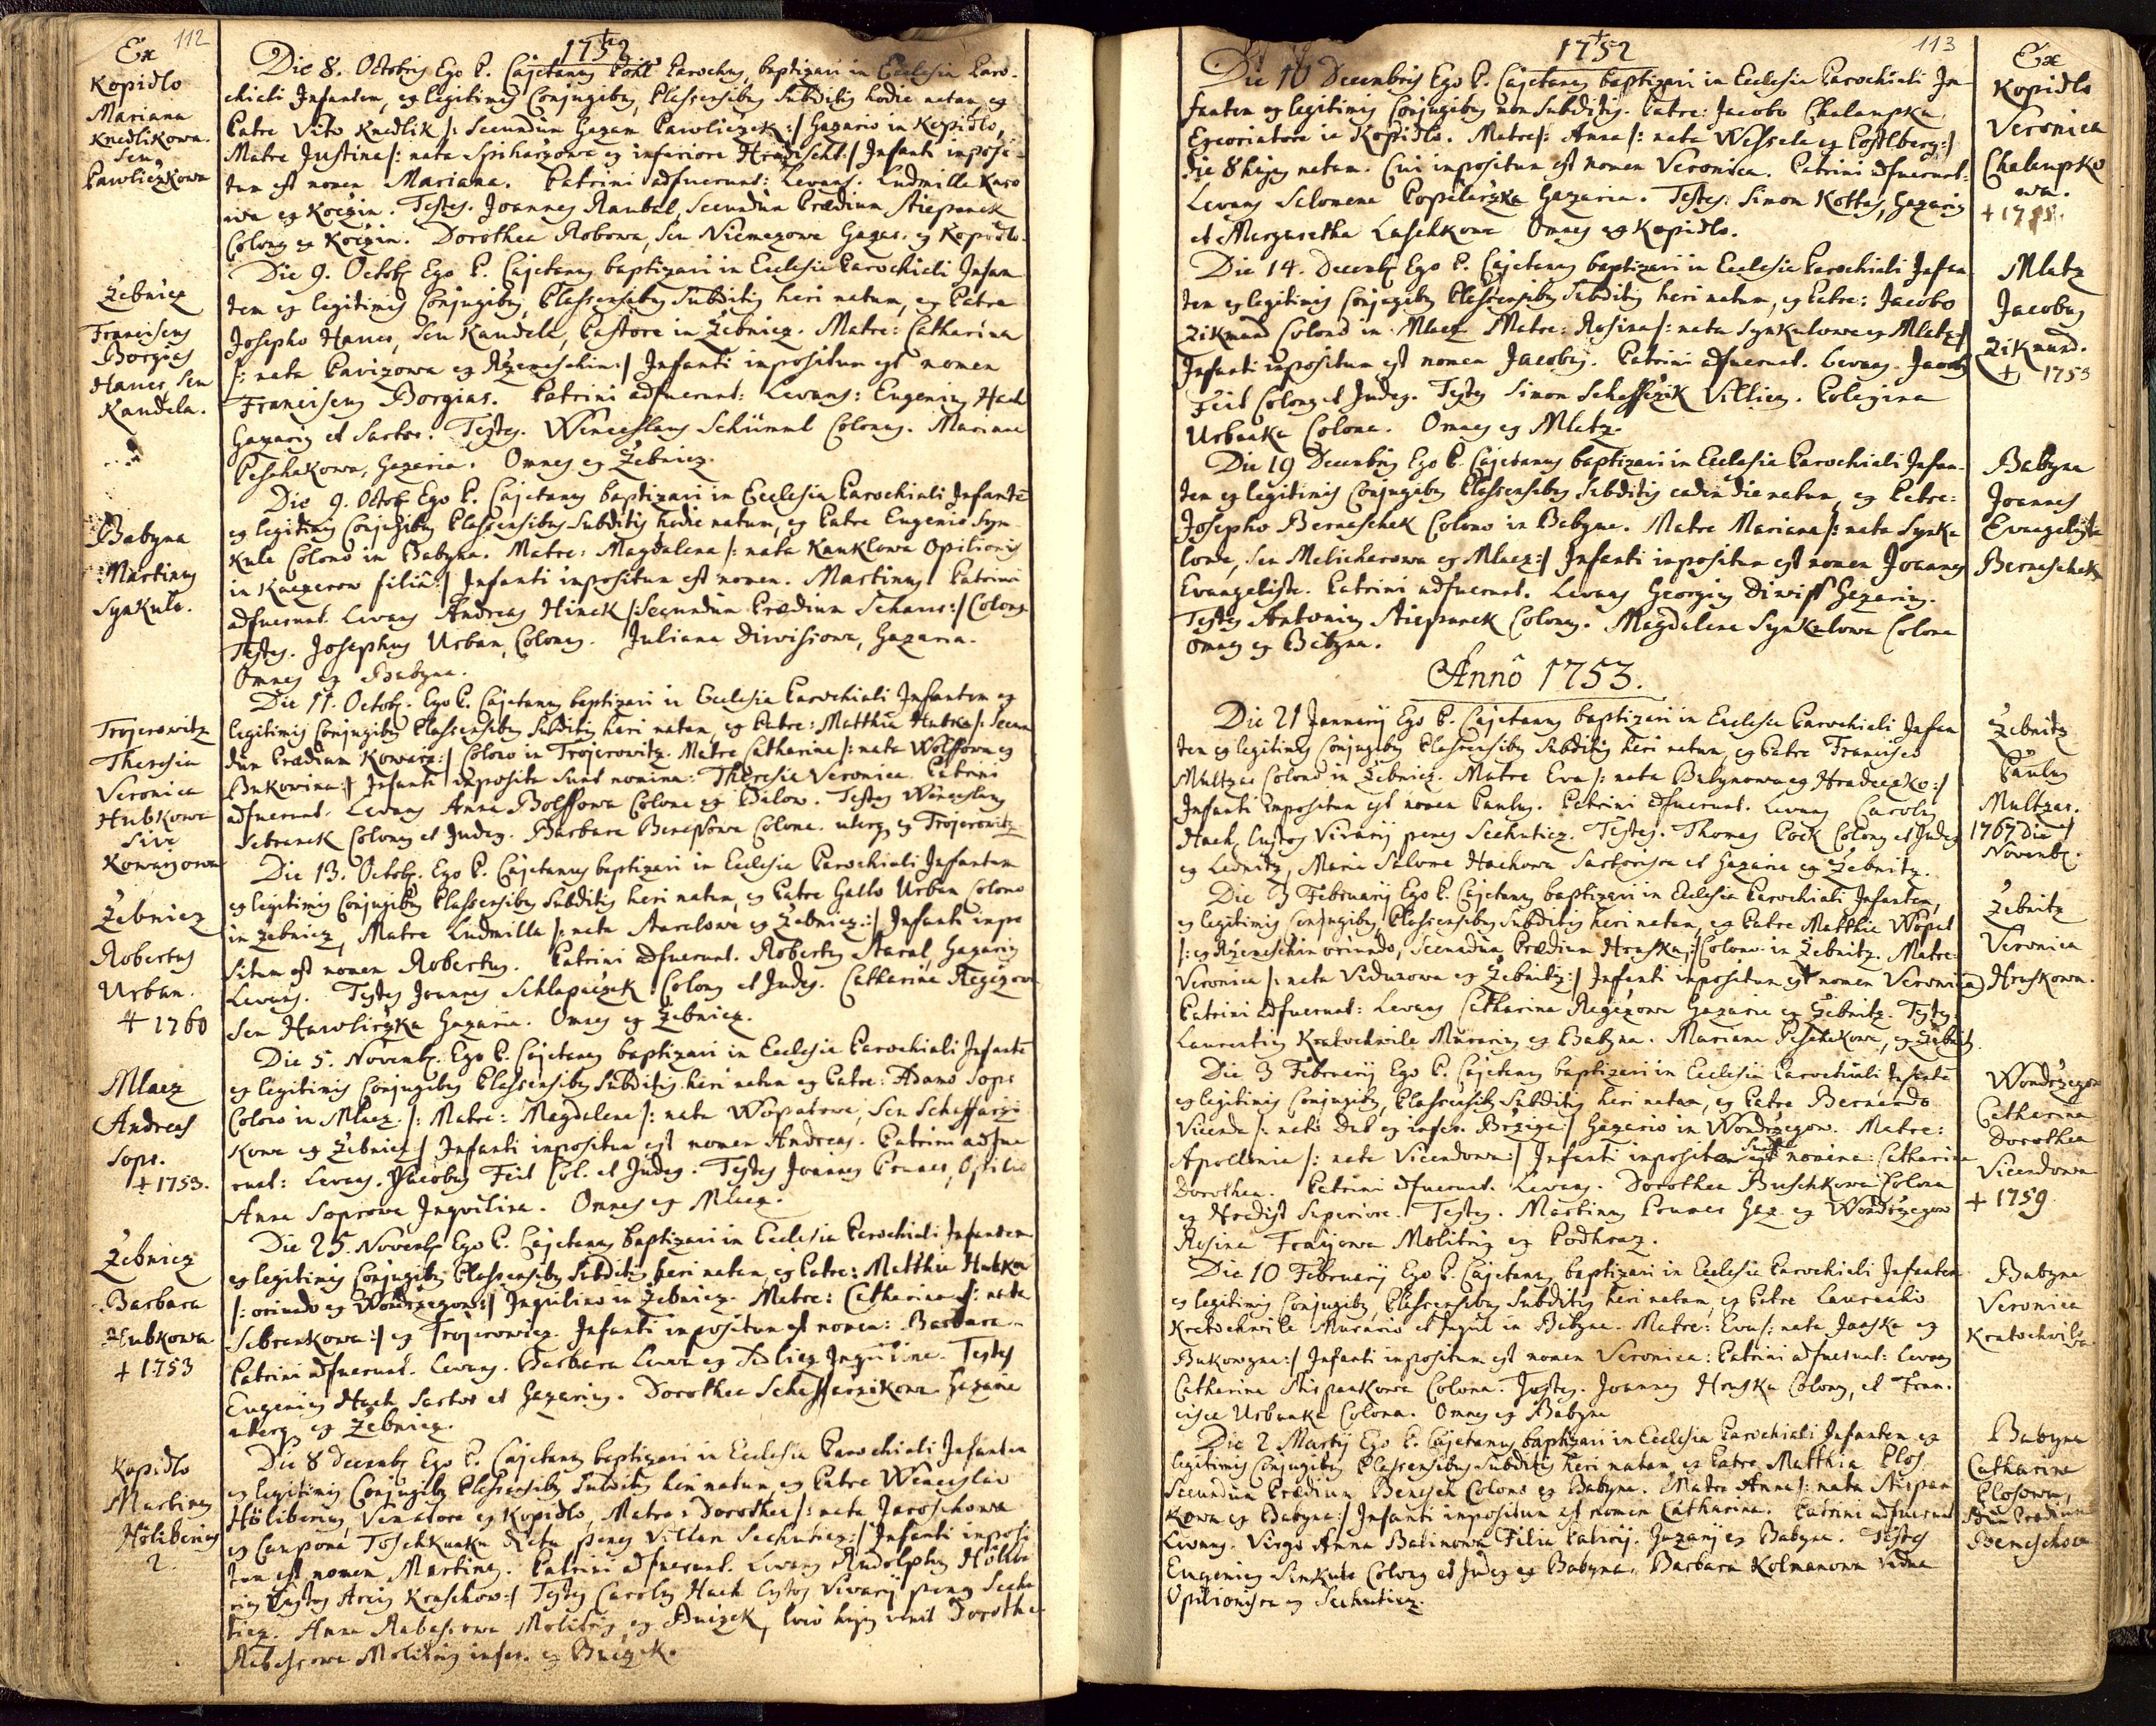 112
1752
Ex
Kopidlo
Mariana
Knedlikowa
seu
Pawliczkowa
Die 8. Octobris Ego P. Cajetanus Pohl Parochus, baptizavi in Ecclesia Paro-
chiali Infantem, ex legitimis Conjugibus, Plassensibus Subditis hodie natam, ex
Patre Vito Knedlik /: Secundum Gazam Pawliczek :/ Gazario in Kopidlo,
Matre Justina /: nata ex inferiore Hradischt :/ Infanti imposi-
tum est nomen Mariana. Patrini adfuerunt: Levans. Ludmilla
ex Koczin. Testes. Joannes Raubal, Secundum Prædium Stiepanek
Colonus ex Koczin. Dorothea Robowa, seu Niemezowa Gazar. ex Kopidlo.
Žebnicz
Franciscus
Borgias
Hanes seu
Kandela.
Die 9. Octob. Ego P. Cajetanus baptizavi in Ecclesia Parochiali Infan
tem ex legitimis Conjugibus, Plassensibus Subditis heri natum, ex Patre
Josepho Hanes, seu Kandela, Pastore in Žebnicz. Matre: Catharina
/: nata Pavizowa ex :/ Infanti impositum est nomen
Franciscus Borgias. Patrini adfuerunt: Levans: Eugenius Hach
Gazarius et Sartor. Testes. Wenceslaus Schimml Colonus. Mariana
Peschakowa, Gazaria. Omnes ex Žebnicz.
Babyna
Martinus
Synkule.
Die 9. Octob. Ego P. Cajetanus baptizavi in Ecclesia Parochiali Infantē
ex legitimis Conjugibus Plassensibus Subditis hodie natum, ex Patre Eugenio Syn
kule Colono in Babyna. Matre: Magdalena /: nata Kanklowa Opilionis
in Kaczerow filiâ :/ Infanti impositum est nomen. Martinus Patrini
adfuerunt. Levans Andreas Hinek /: Secundum Prædium :/ Colonus
Testes. Josephus Urban, Colonus. Juliana Diwisiowa, Gazaria.
Omnes ex Babyna.
Trojerowitz
Theresia
Veronica
Hubkowa
sive
Kowarzowa
Die 11. Octob. Ego P. Cajetanus baptizavi in Ecclesia Parochiali Infantem ex
legitimis Conjugibus Plassensibus Subditis heri natam, ex Patre: Matthia Hubka /: Secun
dum Prædium Kowarz :/ Colono in Trojerowitz. Matre Catharina /: nata Wolffowa ex
Bukowina :/ Infanti imposita sunt nomina: Theresia Veronica. Patrini
adfuerunt. Levans Anna Bolffowa Colona ex Bilow. Testes Wenceslaus
Sebranek Colonus et Judex. Barbara Benessowa Colona. uterq. ex Trojerowitz
Žebnicz
Robertus
Urban.
+ 1760
Die 13. Octob. Ego P. Cajetanus baptizavi in Ecclesia Parochiali Infantem
ex legitimis Conjugibus Plassensibus Subditis heri natum, ex Patre Gallo Urban Colono
in Žebnicz, Matre Ludmilla /: nata ex Žebnicz :/ Infanti impo
situm est nomen Robertus. Patrini adfuerunt. Robertus Gazarius
Levans. Testes Joannes Schlapaczek Colonus et Judex. Catharina Regezowa
seu Hawliczka Gazaria. Omnes ex Žebnicz.
Mlacz
Andreas
Sopr.
+ 1753.
Die 5. Novemb. Ego P. Cajetanus baptizavi in Ecclesia Parochiali Infantē
ex legitimis Conjugibus Plassensibus Subditis heri natum ex Patre: Adamo Sopr
Colono in Mlacz. Matre: Magdalena /: nata Wopatowa, seu Scheffarzi
kowa ex Žebnicz :/ Infanti impositum est nomen Andreas. Patrini adfue
runt: Levans. Jacobus Feit Col. et Judex. Testes Joannes Prunes, Opilio
Anna Soprowa Inquilina. Omnes ex Mlacz.
Žebnicz
Barbara
Hubkowa
+ 1753
Die 25. Novemb. Ego P. Cajetanus baptizavi in Ecclesia Parochiali Infantem
ex legitimis Conjugibus Plassensibus Subditis heri natam, ex Patre: Matthia Hubka
/: oriundo ex Wondrzegow :/ Inquilino in Žebnicz. Matre: Catharina /: nata
Sebrankowa :/ ex Trojerowicz. Infanti impositum est nomen: Barbara.
Patrini adfuerunt. Levans. Barbara ex Inquilina. Testes
Eugenius Hach Sartor et Gazarius. Dorothea Scheffarzikowa Gazaria
uterq. ex Žebnicz.
Kopidlo
Martinus
Höliberius
2.
Die 8 Decemb. Ego P. Cajetanus baptizavi in Ecclesia Parochiali Infantem
ex legitimis Conjugibus Plassensibus Subditis heri natum ex Patre Wenceslao
Höliberius, Venatore ex Kopidlo, Matre: Dorothea /: nata Jaroschowa
ex Caupona penes Villam Sechuticz :/ Infanti imposi
tum est nomen Martinus. Patrini adfuerunt. Levans Rudolphus Hölibe
rius Custos Arcis Kraschow :/ Testes Carolus Hach Custos Vivarij penes Sechu
ticz. Anna Molitrix ex, loco hujus venit Dorothea
Molitrix infer. ex.
113
1752
Die 10 Decembris Ego P. Cajetanus baptizavi in Ecclesia Parochiali In
fantem ex legitimis Conjugibus non Subditis. Patre: Jacobo Chalaupka
Excoriatore in Kopidlo. Matre /: Anna /: nata Wessela ex Postlberg :/
die 8 hujus natam. Cui impositum est nomen Veronica. Patrini adfuerunt:
Levans Salomena Gazaria. Testes: Simon Kottas, Gazarius
et Margaretha Laschkowa Omnes ex Kopidlo.
Ex
Kopidlo
Veronica
Chalaupko
wa.
Die 14. Decemb. Ego P. Cajetanus baptizavi in Ecclesia Parochiali Infan
tem ex legitimis Conjugibus Plassensibus Subditis heri natum, ex Patre: Jacobo
Zikmund Colono in Mlacz Matre: Rosina /: nata Synkulowa ex Mlatz :/
Infanti impositum est nomen Jacobus. Patrini adfuerunt. Levans. Jacobus
Feit Colonus et Judex. Testes Simon Villicus. Polexina
Urbanka Colona. Omnes ex Mlatz.
Mlatz
Jacobus
Zikmund.
+ 1753
Die 19 Decembris Ego P. Cajetanus baptizavi in Ecclesia Parochiali Infan-
tem ex legitimis Conjugibus Plassensibus Subditis eadem die natum, ex Patre:
Josepho Berneschek Colono in Babyna. Matre Mariana /: nata Synku
lowa, seu Melicharowa ex Mlacz :/ Infanti impositum est nomen Joannes
Evangelista. Patrini adfuerunt. Levans Georgius Diwiss Gazarius.
Testes Antonius Stiepanek Colonus. Magdalena Synkulowa Colona
omnes ex Babyna.
Babyna
Joannes
Evangelista
Berneschek
Annô 1753.
Die 21 Januarij Ego P. Cajetanus baptizavi in Ecclesia Parochiali Infan
tem ex legitimis Conjugibus Plassensibus Subditis heri natum, ex Patre Francisco
Multzar Colono in Žebnicz. Matre Eva /: nata Babynowa ex Hradecko :/
Infanti impositum est nomen Paulus. Patrini adfuerunt. Levans Carolus
Hach, Custos Vivarij penes Sechuticz. Testes. Thomas Cock Colonus et Judex
ex Lednitz, Maria Salome Hachowa Sartorissa et Gazaria ex Žebnitz.
Žebnitz
Paulus
Multzar.
1767 die
Novemb.
Die 3 Februarij Ego P. Cajetanus baptizavi in Ecclesia Parochiali Infantem,
ex legitimis Conjugibus, Plassensibus Subditis heri natam, ex Patre Matthia Wopat
/: ex oriundo, Secundum Prædium Hruska :/ Colono in Žebnitz. Matre
Veronica /: nata Vidunowa ex Žebnitz :/ Infanti impositum est nomen Veronica
Patrini adfuerunt: Levans Catharina Regezowa Gazaria ex Žebnitz. Testes:
Laurentius Kratochwile Murarius ex Babyna. Mariana Peschakowa, ex Žebnitz.
Žebnitz
Veronica
Hruskowa.
Die 3 Februarij Ego P. Cajetanus baptizavi in Ecclesia Parochiali Infantē
ex legitimis Conjugibus, Plassensibus Subditis heri natam, ex Patre Bernardo
Vicenda /: ex infer. :/ Gazario in Wondrzegow. Matre:
Apollonia /: nata Vicendowa :/ Infanti imposita sunt nomina: Catharina
Dorothea. Patrini adfuerunt. Levans. Dorothea Buschkowa Colona
ex Hradist Superiore. Testes. Martinus Prunes Gaz. ex Wondrzegow
Rosina Molitrix ex Podhraz.
Wondrzegow
Catharina
Dorothea
Vicendowa
+ 1759.
Die 10 Februarij Ego P. Cajetanus baptizavi in Ecclesia Parochiali Infantem
ex legitimis Conjugibus, Plassensibus Subditis heri natam, ex Patre Laurentio
Kratochwile Murario et Inquil. in Babyna. Matre: Eva /: nata ex
Bukowyna :/ Infanti impositum est nomen Veronica: Patrini adfuerunt: Levans
Catharina Stiepankowa Colona. Testes. Joannes Hruska Colonus, et Fran-
cisca Urbanka Colona. Omnes ex Babyna
Babyna
Veronica
Kratochwilowa
Die 2 Martij Ego P. Cajetanus baptizavi in Ecclesia Parochiali Infantem ex
legitimis Conjugibus Plassensibus Subditis heri natam ex Patre Matthia Plos
Secundum Prædium Benesch Colono ex Babyna. Matre Anna /: nata Stiepan
kowa ex Babyna :/ Infanti impositum est nomen Catharina. Patrini adfuerunt
Levans. Virgo Anna Filia Gazarij ex Babyna. Testes
Eugenius Sinkule Colonus et Judex ex Babyna. Barbara Kolmanowa vidua
Opilionissa ex Sechuticz.
Babyna
Catharina
Plosowa,
Prædium
Beneschowa